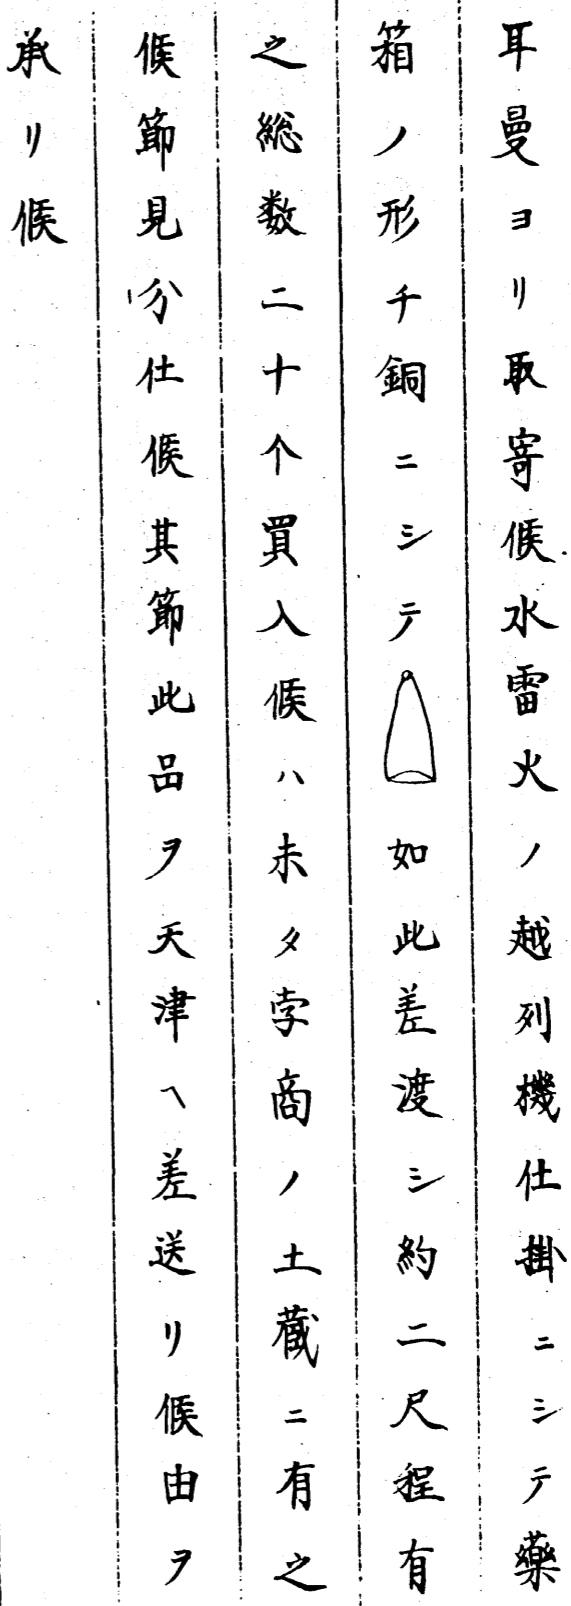 耳曼ヨリ取寄候水雷火ノ越列機仕掛ニシテ藥
箱ノ形チ銅ニシテ如此差渡シ約二尺程有
之総数二十个買入候ハ未タ孛商ノ土蔵ニ有之
候節見分仕候其節此品ヲ天津ヘ差送リ候由ヲ
承リ候